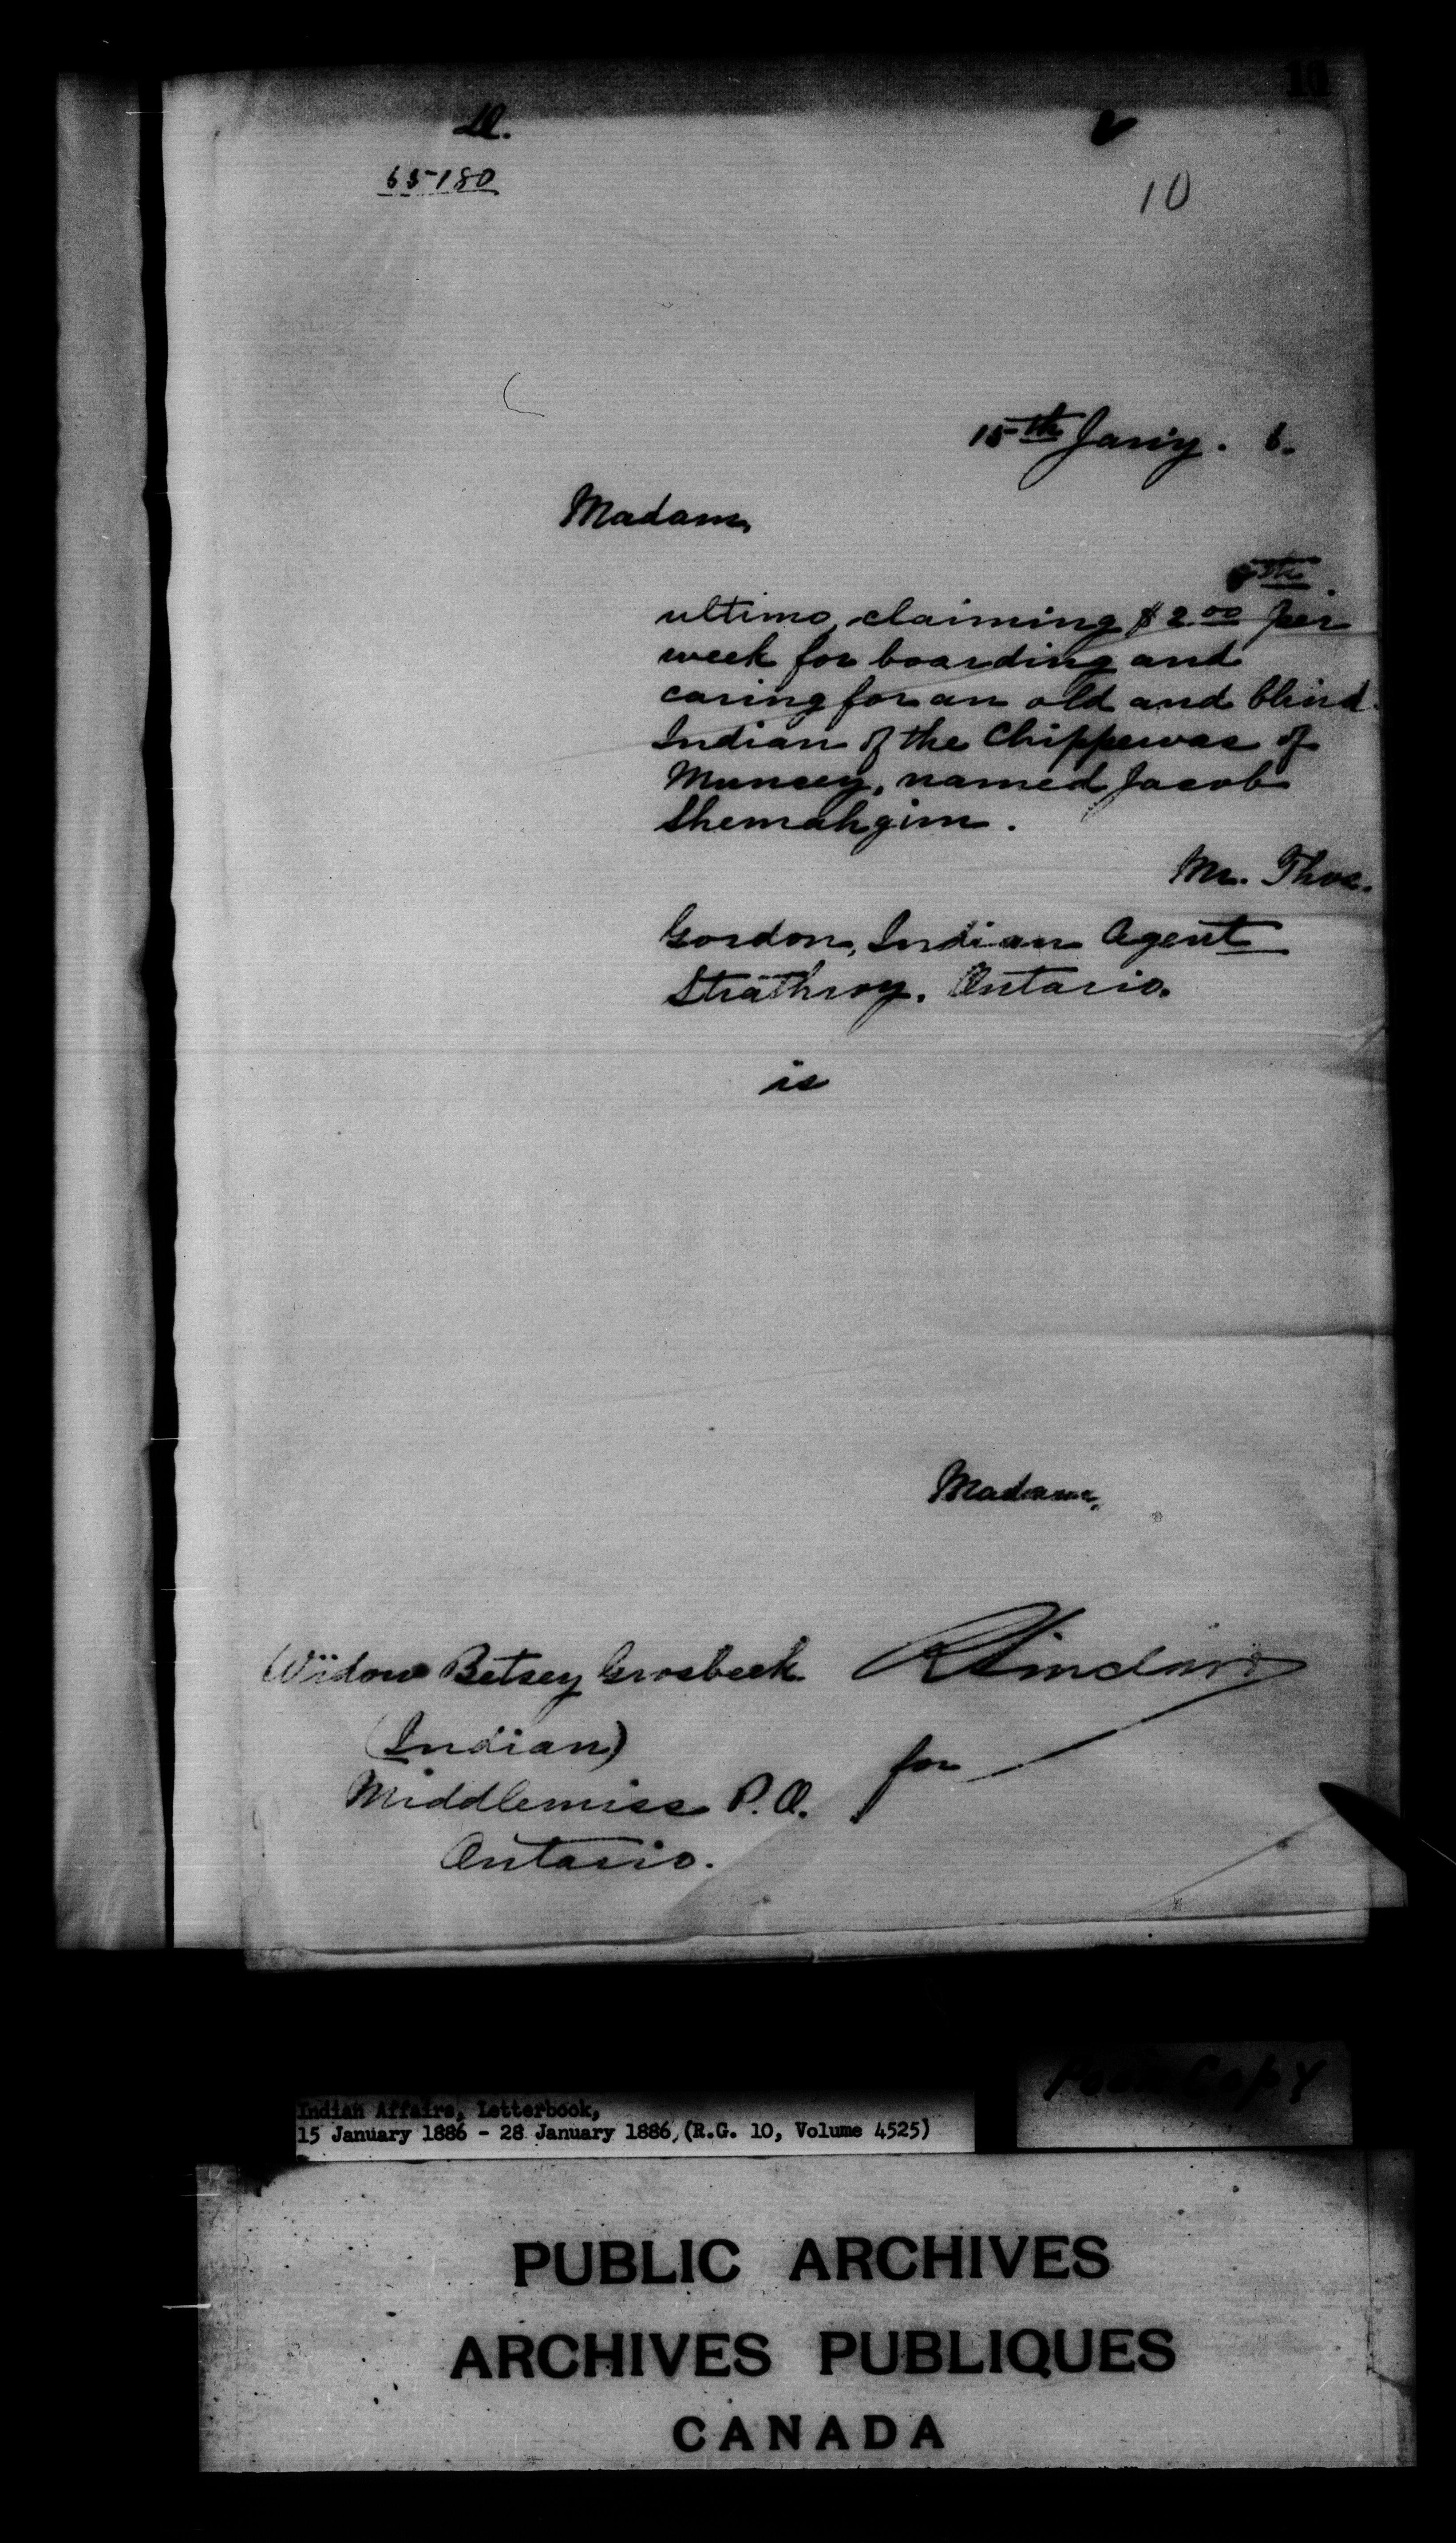 10
65180
10
15th Jany. 6.
Madam,
th
ultimo, claiming $2.00 per
week for boarding and
caring for an old and blind
Indian of the Chippewas of
Muncey, named Jacob
Shemahgim.
Mr. Thos.
Gordon, Indian Agent
Strathroy. Ontario.
is
Madam,
Widow Betsey Grosbeck RSinclair
(Indian) for
Middlemiss P.O.
Ontario.
Poor Copy
Indian Affairs, Letterbook,
15 January 1886 - 28 January 1886, (R.G. 10, Volume 4525)
PUBLIC ARCHIVES
ARCHIVES PUBLIQUES
CANADA